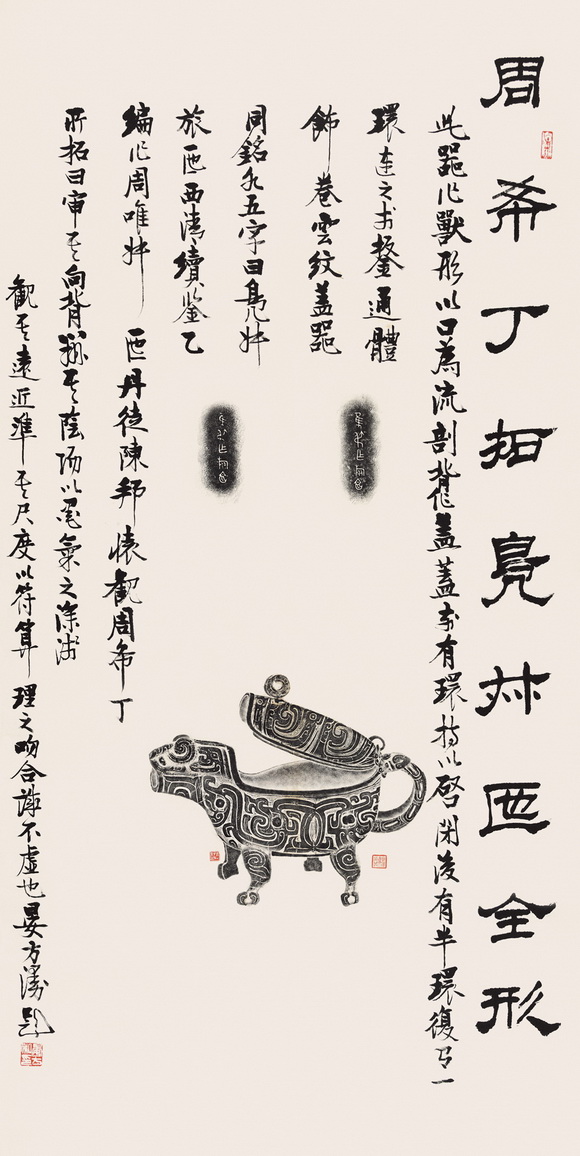 周希丁拓鳧叔匜全形
此器作獸形以口為流剖背作蓋蓋前有環持以啓閉後有半環復以一
環連之於鋬通體
飾卷雲紋蓋器
同銘五字曰鳧叔
旅匜西清續鑑乙
編作周唯叔匜丹徒陳邦懷觀周希丁
所拓曰審其向背其陰陽以墨氣之深淺
觀其遠近準其尺度以符算理之吻合誠不虛也晏方題